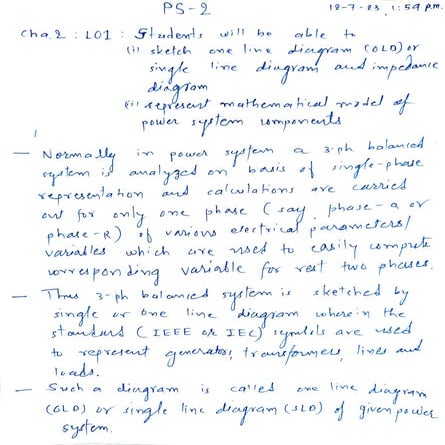 PS-2
18-7-23, 1:59 p.m.
Cha.2 : LO1 : Students will be able to
(i) sketch one line diagram (OLD) or
single line diagram and impedance
diagram
(ii) represent mathematical model of
power system components
— Normally in power system a 3-ph balanced
system is analyzed on basis of single-phase
representation and calculations are carried
out for only one phase (say phase-a or
phase-R) of various electrical parameters/
variables which are used to easily compute
corresponding variable for rest two phases.
— Thus 3-ph balanced system is sketched by
single or one line diagram wherein the
standard (IEEE or IEC) symbols are used
to represent generators, transformers, lines and
loads.
— Such a diagram is called one line diagram
(OLD) or single line diagram (SLD) of given power
system.